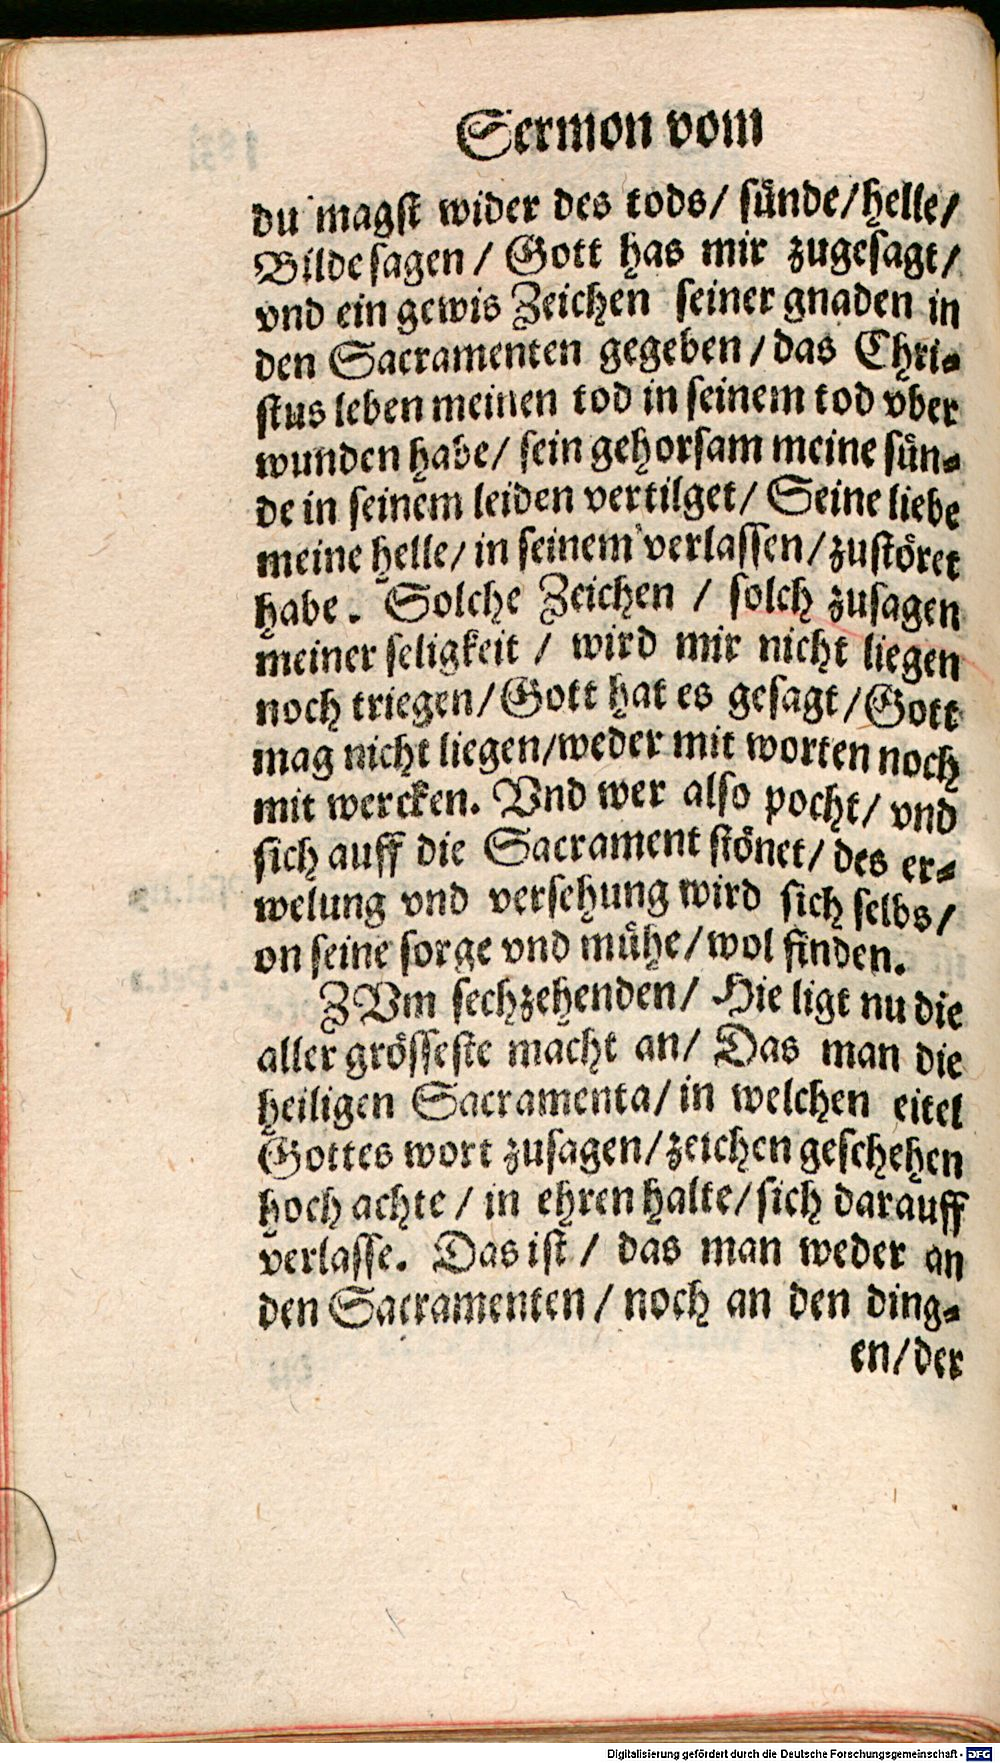 Sermon vom
du magst wider des tods/ sünde/helle/
Bilde sagen / Gott has mir zugesagt/
vnd ein gewis Zeichen seiner gnaden in
den Sacramenten gegeben/das Chri-
stus leben meinen tod in seinem tod vber
wunden habe/ sein gehorsam meine sün-
de in seinem leiden vertilget/ Seine liebe
meine helle/ in seinem verlassen/zustöret
habe. Solche Zeichen / solch zusagen
meiner seligkeit / wird mir nicht liegen
noch triegen/Gott hat es gesagt/Gott
mag nicht liegen/weder mit worten noch
mit wercken. Vnd wer also pocht/ vnd
sich auff die Sacrament stönet/ des er-
welung vnd versehung wird sich selbs/
on seine sorge vnd mühe/wol finden.
ZVm sechzehenden/ Hie ligt nu die
aller grösseste macht an/ Das man die
heiligen Sacramenta/ in welchen eitel
Gottes wort zusagen/zeichen geschehen
hoch achte / in ehren halte/sich darauff
verlasse. Das ist / das man weder an
den Sacramenten / noch an den ding-
en/der
Digitalisierung gefördert durch die Deutsche Forschungsgemeinschaft - DFG